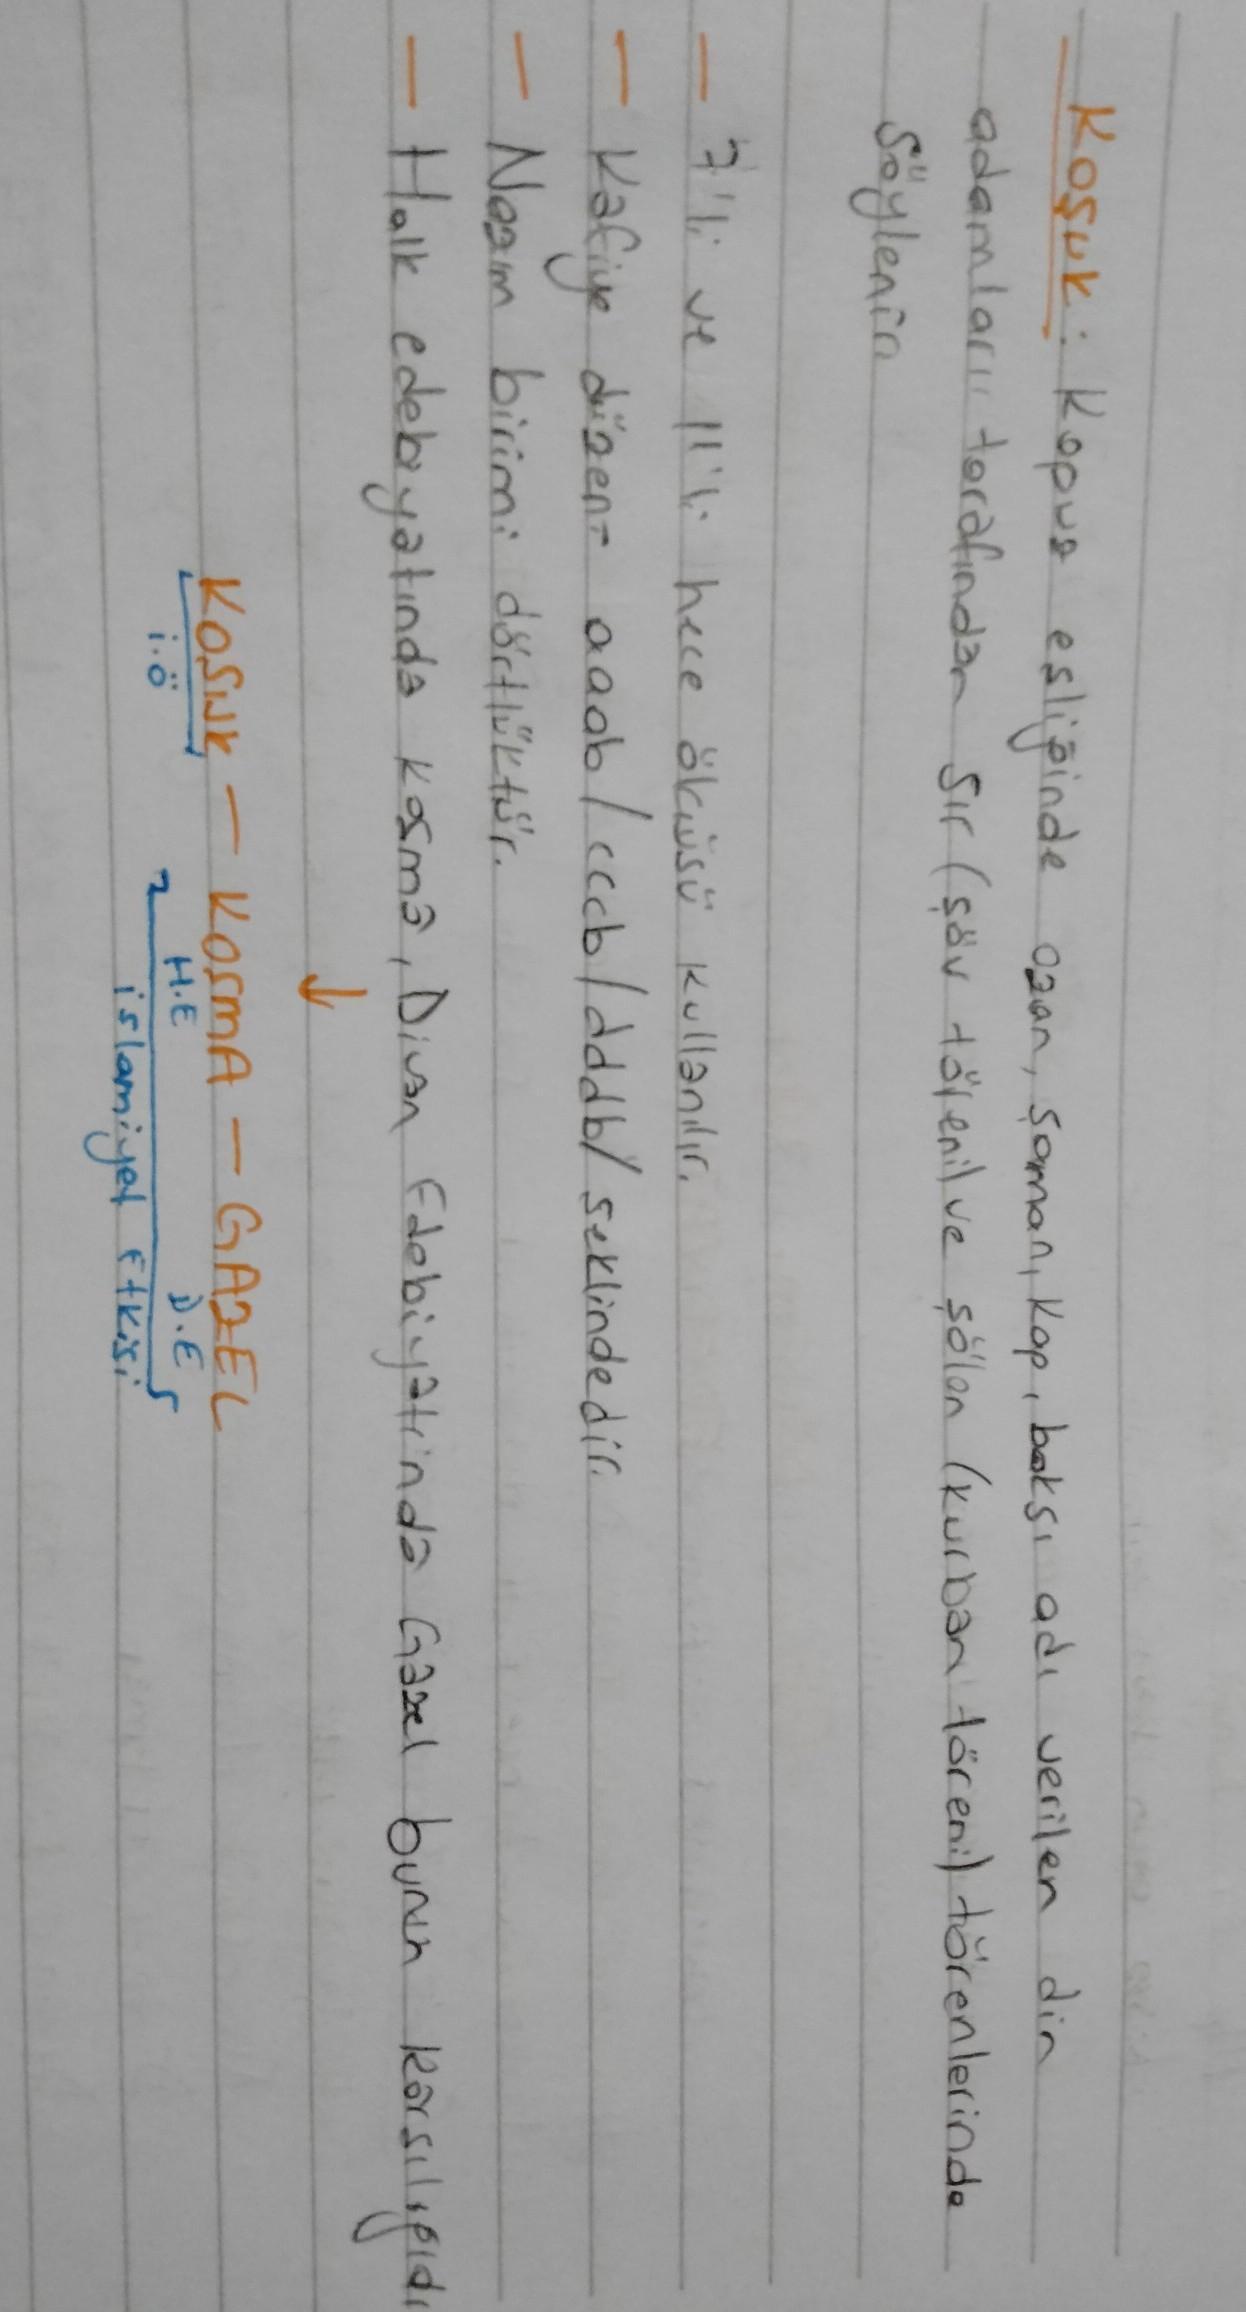 Koşuk: Kopuz eşliğinde ozan, şaman, kap, baksı adı verilen din
adamları tarafından sır (sğav törenil ve şölen (kurban töreni) törenlerinde
Söylenir
— 7'li ve 11'li hece ölçüsü kullanılır.
— Kafiye düzeni- aaab/cccb/dddb/ şeklindedir.
— Nazım birimi dörtlüktür.
— Halk edebiyatında koşma, Divan Edebiyatında Gazel bunun karşılığıdı
↓
KOŞUK — KOŞMA — GAZEL
i.Ö H.E D.E
islamiyet Etkisi